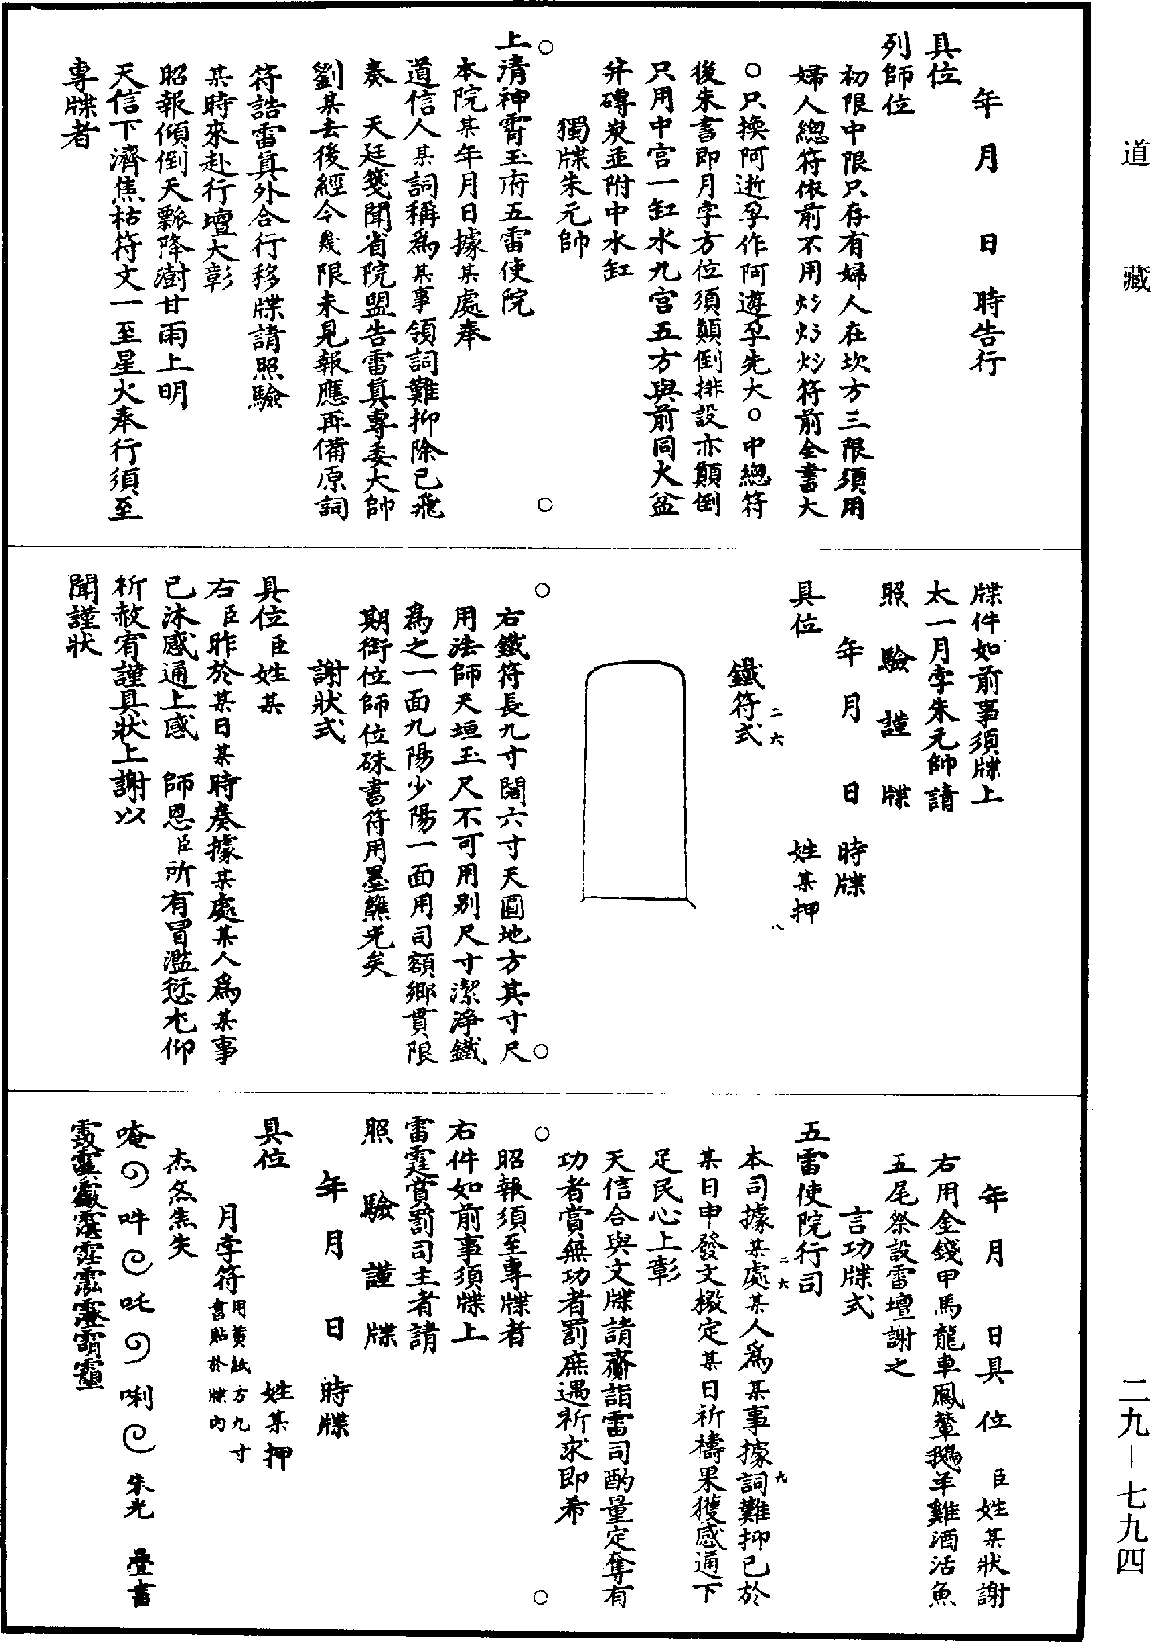 道藏
年月　日　時告行
具位
列師位
初限中限只存有婦人在坎方三限須用
婦人總符依前不用炒炒炒符前全書大
○只換阿逝孚作阿遵孚先大○中總符
後朱書即月孛方位須顛倒排設亦顛倒
只用中宮一缸水九宮五方與前同火盆
并磚炭並附中水缸
獨牒朱元帥
上清神霄玉府五雷使院
本院某年月日據某處奉
道信人某詞稱為某事領詞難抑除已飛
奏　天廷箋聞省院盟告雷真專委大帥
劉某去後經今幾限未見報應再備原詞
符誥雷真外合行移牒請照驗
某時來赴行壇大彰
昭報傾倒天瓢降澍甘雨上明
天信下濟焦枯符文一至星火奉行須至
專牒者
牒件如前事須牒上
太一月孛朱元帥請
照驗謹牒
年月　日　時牒
具位　姓某押
八
鐵符式
二六
右鐵符長九寸闊六寸天圓地方其寸尺
用法師天垣玉尺不可用別尺寸潔淨鐵
為之一面九陽少陽一面用司額鄉貫限
期銜位師位硃書符用墨蘸光矣
謝狀式
具位臣姓某
右臣昨於某日某時奏據某處某人為某事
已沐感通上感　師恩臣所有冒濫愆尤仰
祈赦宥謹具狀上謝以
聞謹狀
年月　日具位　臣姓某狀謝
右用金錢甲馬龍車鳳輦鵝羊雞酒活魚
五尾祭設雷壇謝之
言功牒式
五雷使院行司
二六
本司據某處某人為某事據詞難抑已於
九
某日申發文檄定某日祈禱果獲感通下
足民心上彰
天信合與文牒請齎詣雷司酌量定奪有
功者賞無功者罰庶遇祈求即希
昭報須至專牒者
右件如前事須牒上
雷霆賞罰司主者請
照驗謹牒
年月　日　時牒
具位　姓某押
月孛符用黃紙方九寸書貼於牒內
杰炁焦失
唵吽吒唎朱光　疊書
二九－七九四